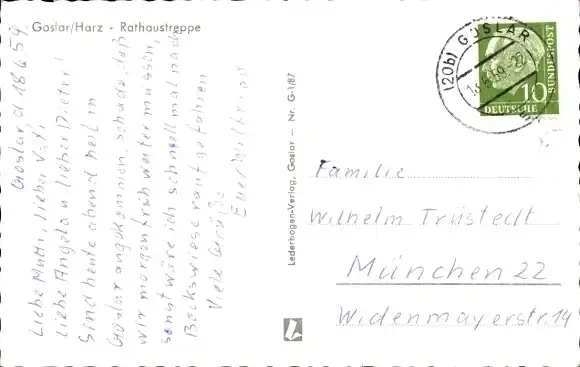 Goslar/Harz - Rathaustreppe
Goslar, d 18.6.59
Liebe Mutti, lieber Vati,
liebe Angela u lieber Dieter!
Sind heute abend heil in
Goslar angekommen. Schade, daß
wir morgen früh weiter müssen,
sonst wäre ich schnell mal nach
Bockswiese rauf gefahren
Viele Grüße
Euer Wilfried
Lederbogen-Verlag, Goslar - Nr. G-1/87
(20b) GOSLAR
10
DEUTSCHE
BUNDESPOST
Familie
Wilhelm Trüstedt
München 22
Widenmayerstr. 14